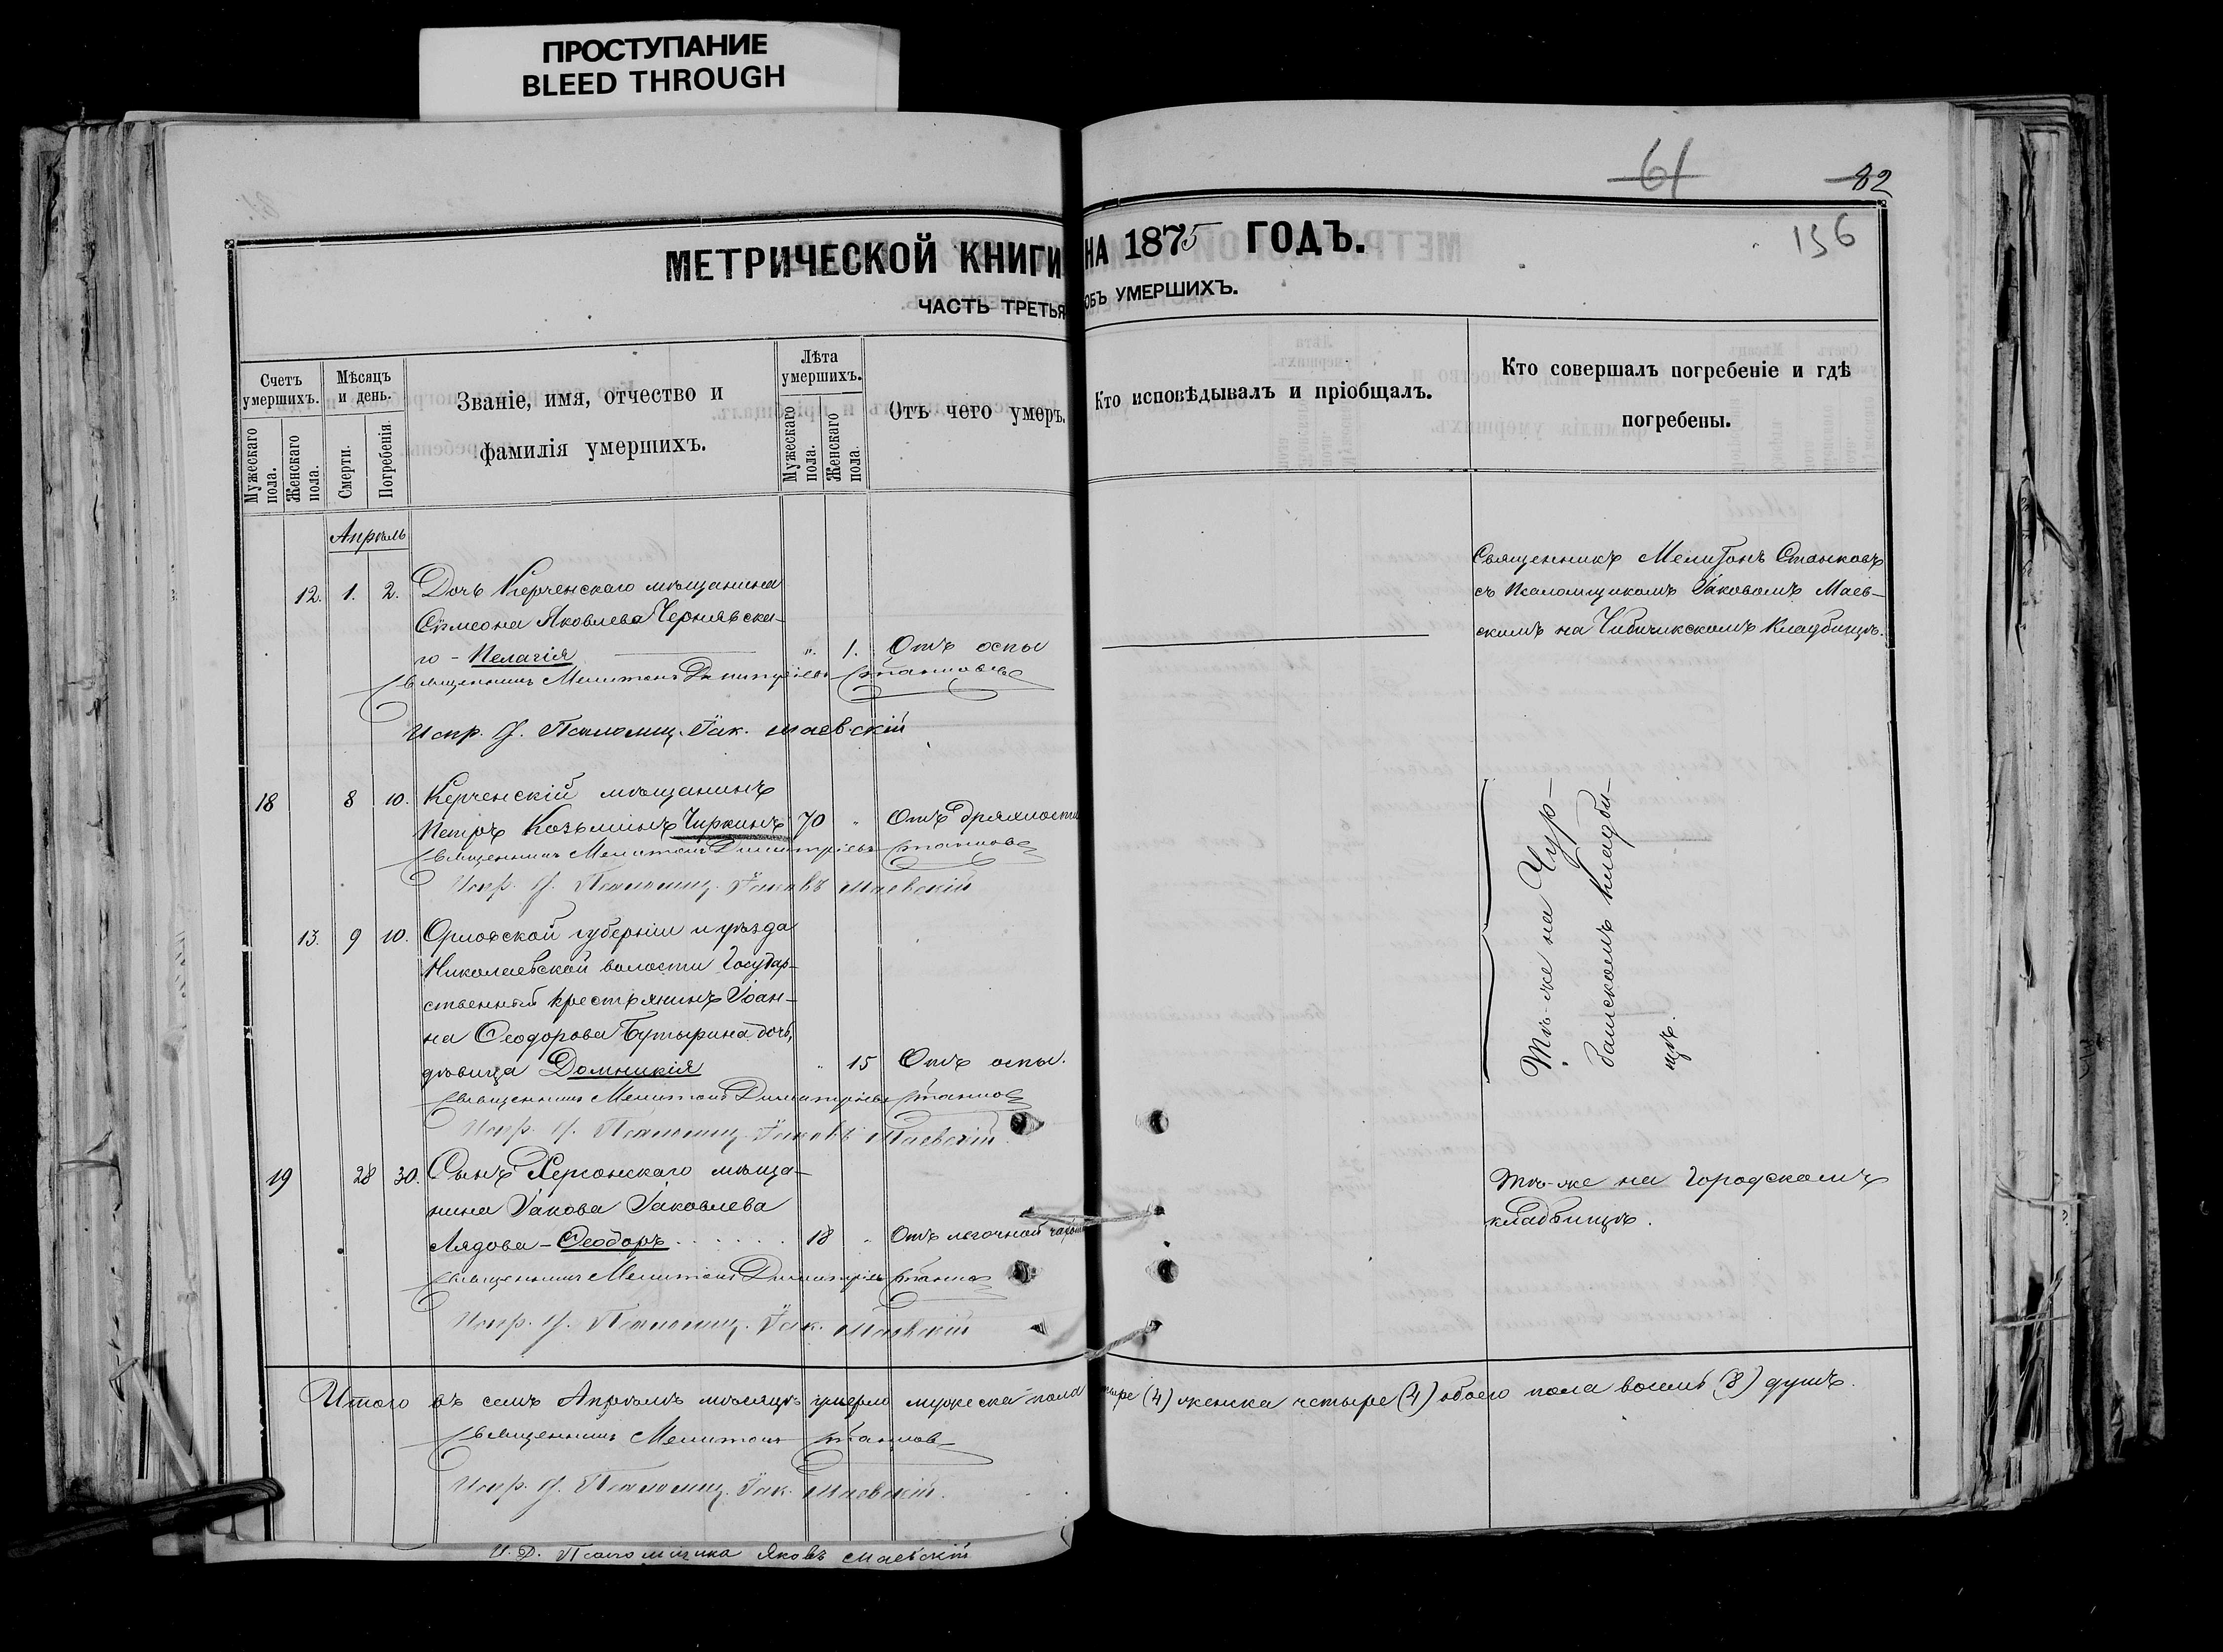 ПРОСТУПАНИЕ
BLEED THROUGH
61
82
156
МЕТРИЧЕСКОЙ КНИГИ НА 1875 ГОДЪ.
ЧАСТЬ ТРЕТЬЯ ОБЪ УМЕРШИХЪ.
Счетъ умершихъ.
Мужескаго пола.
Женскаго пола.
Мѣсяцъ и день.
Смерти.
Погребенія.
Званіе, имя, отчество и
фамилія умершихъ.
Лѣта умершихъ.
Мужескаго пола.
Женскаго пола.
Отъ чего умеръ.
Кто исповѣдывалъ и пріобщалъ.
Кто совершалъ погребеніе и гдѣ
погребены.
Апрѣль
12. 1. 2. Дочь Керченскаго мѣщанина
Сѵмеона Яковлева Чернявска-
го - Пелагія " 1. Отъ оспы
Священникъ Мелитонъ Димитріевъ Станковъ
Испр. д. Псаломщ. Іак. Маевскій
Священникъ Мелитонъ Станковъ
съ Псаломщикомъ Іаковомъ Маев-
скимъ на Кладбищѣ.
18 8 10. Керченскій мѣщанинъ
Петръ Козьминъ Чиркинъ 70 " Отъ дряхлости
Священникъ Мелитонъ Димитріевъ Станковъ
Испр. д. Псаломщ. Іаковъ Маевскій
13. 9 10. Орловской губерніи и уѣзда
Николаевской волости Государ-
ственный крестьянинъ Іоан-
на Ѳеодорова Бутырина дочь,
дѣвица Домникія " 15 Отъ оспы.
Священникъ Мелитонъ Димитріевъ Станковъ
Испр. д. Псаломщ. Іаковъ Маевскій
Тѣ-же на Чур-
башскомъ кладби-
щѣ.
19 28 30. Сынъ Херсонскаго мѣща-
нина Іакова Іаковлева
Лядова - Ѳеодоръ 18 " Отъ легочной
Священникъ Мелитонъ Димитріевъ Станковъ
Испр. д. Псаломщ. Іак. Маевскій
Тѣ-же на Городскомъ
кладбищѣ.
Итого въ семъ Апрѣлѣ мѣсяцѣ умерло мужеска пола тыре (4) женска четыре (4) обоего пола восемь (8) душъ.
Священникъ Мелитонъ Станковъ
Испр. д. Псаломщ. Іак. Маевскій.
И. Д. Псаломщика Яковъ Маевскій